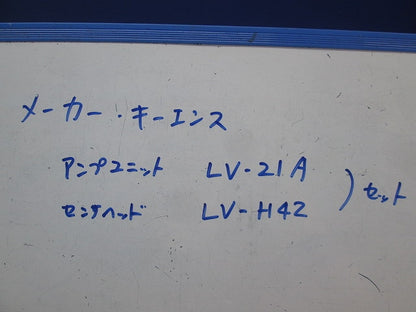 メーカー・キーエンス
アンプユニット LV-21A
センサヘッド LV-H42
)セット